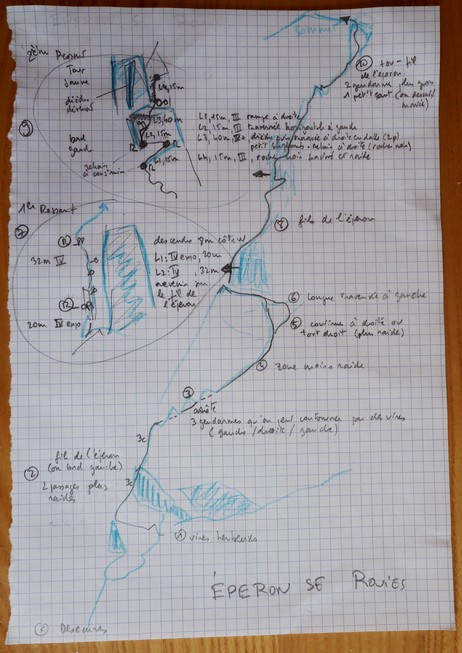 Sommet
⑩ tour - fil
de l'éperon
2 gendarmes
1 petit saut
2ème Ressaut
Tour
jaune
dièdre
bord
gauche
relais
L4, 15m
L3, 40m
L2, 15m
L1, 15m
R
R
R
⑨
L1, 15m, III rampe à droite
L2, 15m III traversée horizontale à gauche
L3, 40m
petit surplomb - relais à droite (rocher noir)
L4, 15m, IV, rocher noir
⑧ fil de l'éperon
1er Ressaut
⑦
R
32m IV
R
20m IV expo
descendre 8m côté W
L1: IV expo, 20m
L2: IV, 32m
revenir sur
le fil de
l'éperon
⑥ longue traversée à gauche
⑤ continue à droite ou
tout droit (plus raide)
④ zone moins raide
③
arête
3 gendarmes qu'on peut contourner par des vires
(gauche / droite / gauche)
3c
fil de l'éperon
(ou bord gauche)
② 2 passages plus
raides
3c
① vires herbeuses
ÉPERON SE ROUIES